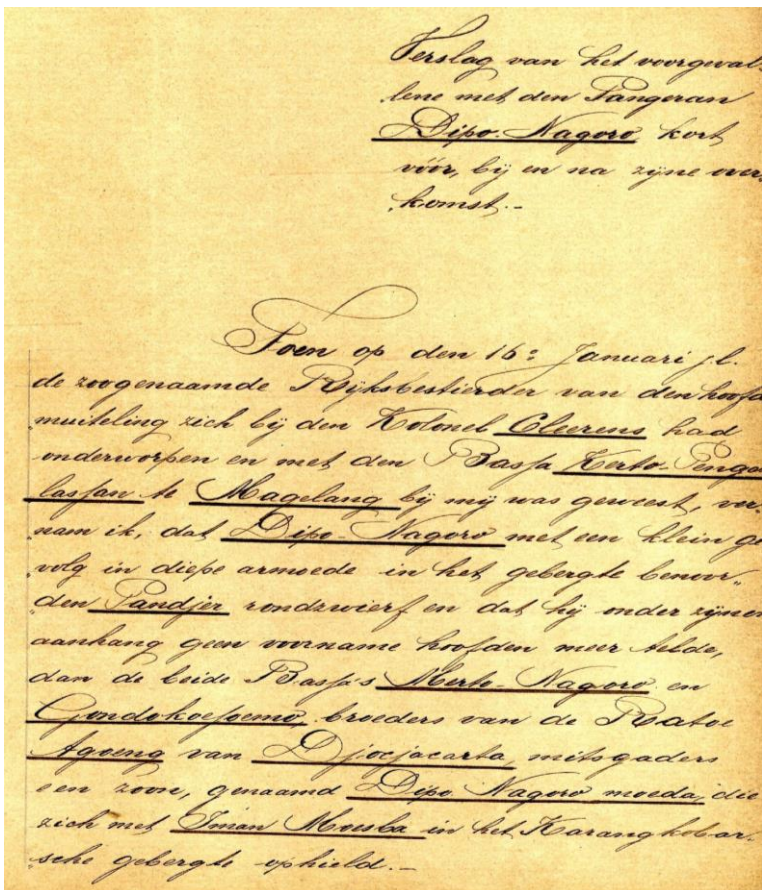 Verslag van het voorgeval-
lene met den Pangeran
Dipo-Nagoro, kort
vóór, bij en na zijne over-
komst.-
Toen op den 16e Januari j.l.
de zoogenaamde Rijksbestierder van den hoofd
muiteling zich bij den Kolonel Cleerens had
onderworpen en met den Bassa Kerto-Penga
lassan te Magelang bij mij was geweest, ver-
nam ik, dat Dipo-Nagoro met een klein ge
volg in diepe armoede in het gebergte benoor-
den Pandjer rondzwierf en dat hij onder zijnen
aanhang geen voorname hoofden meer telde,
dan de beide Bassa's Merto-Nagoro en
Gondokoesoemo, broeders van de Ratoe
Agoeng van Djocjacarta, mitsgaders
een zoon, genaamd Dipo Nagoro moeda, die
zich met Iman Moesba in het Karangkobar-
sche gebergte ophield.-